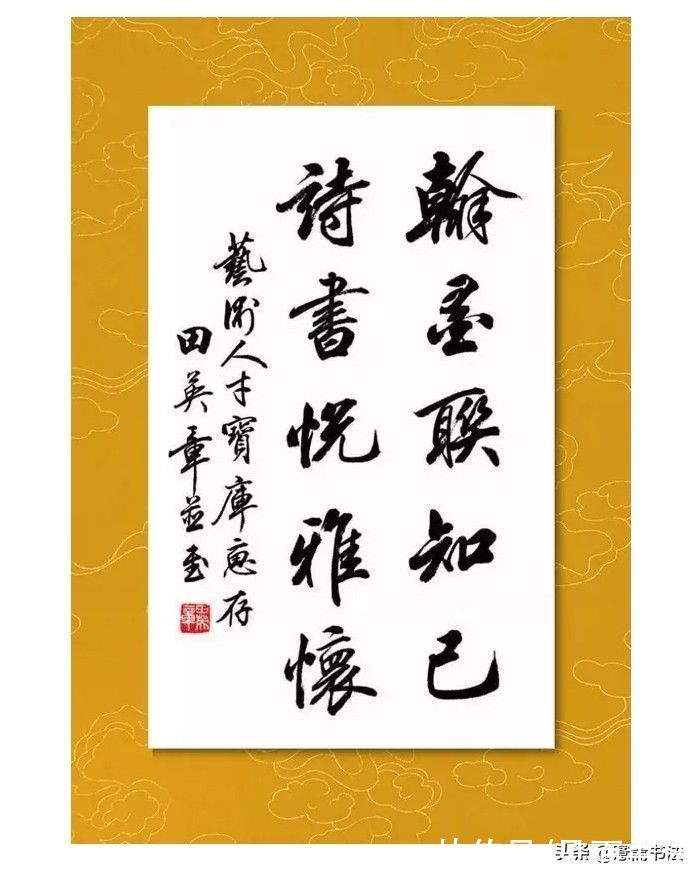 翰墨聯知己
詩書悦雅懷
藝術人才寶庫惠存
田英章並書
头条@意霖书法